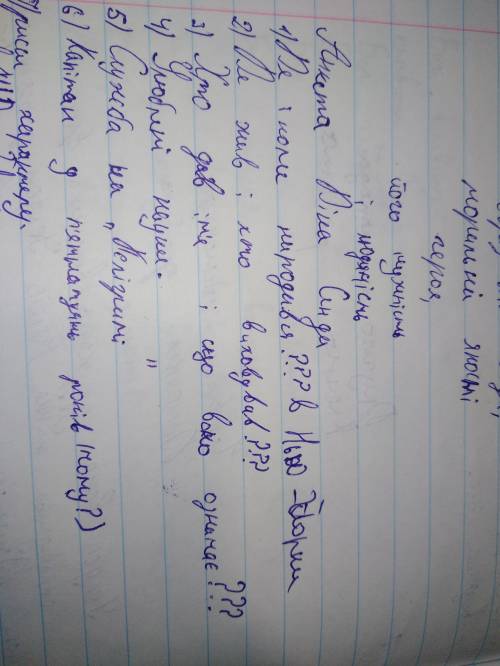 моральні якості
героя,
його мужність
і людяність
Анкета Діка Сенда
1) Де і коли народився??? в Нью-Йорки
2) Де жив і хто виховував???
3) Хто дав імя і що воно означає?... ???
4) Улюблені науки.
5) Служба на „Пілігримі"
6) Капітан у пятнадцять років (чому?)
риси характеру.